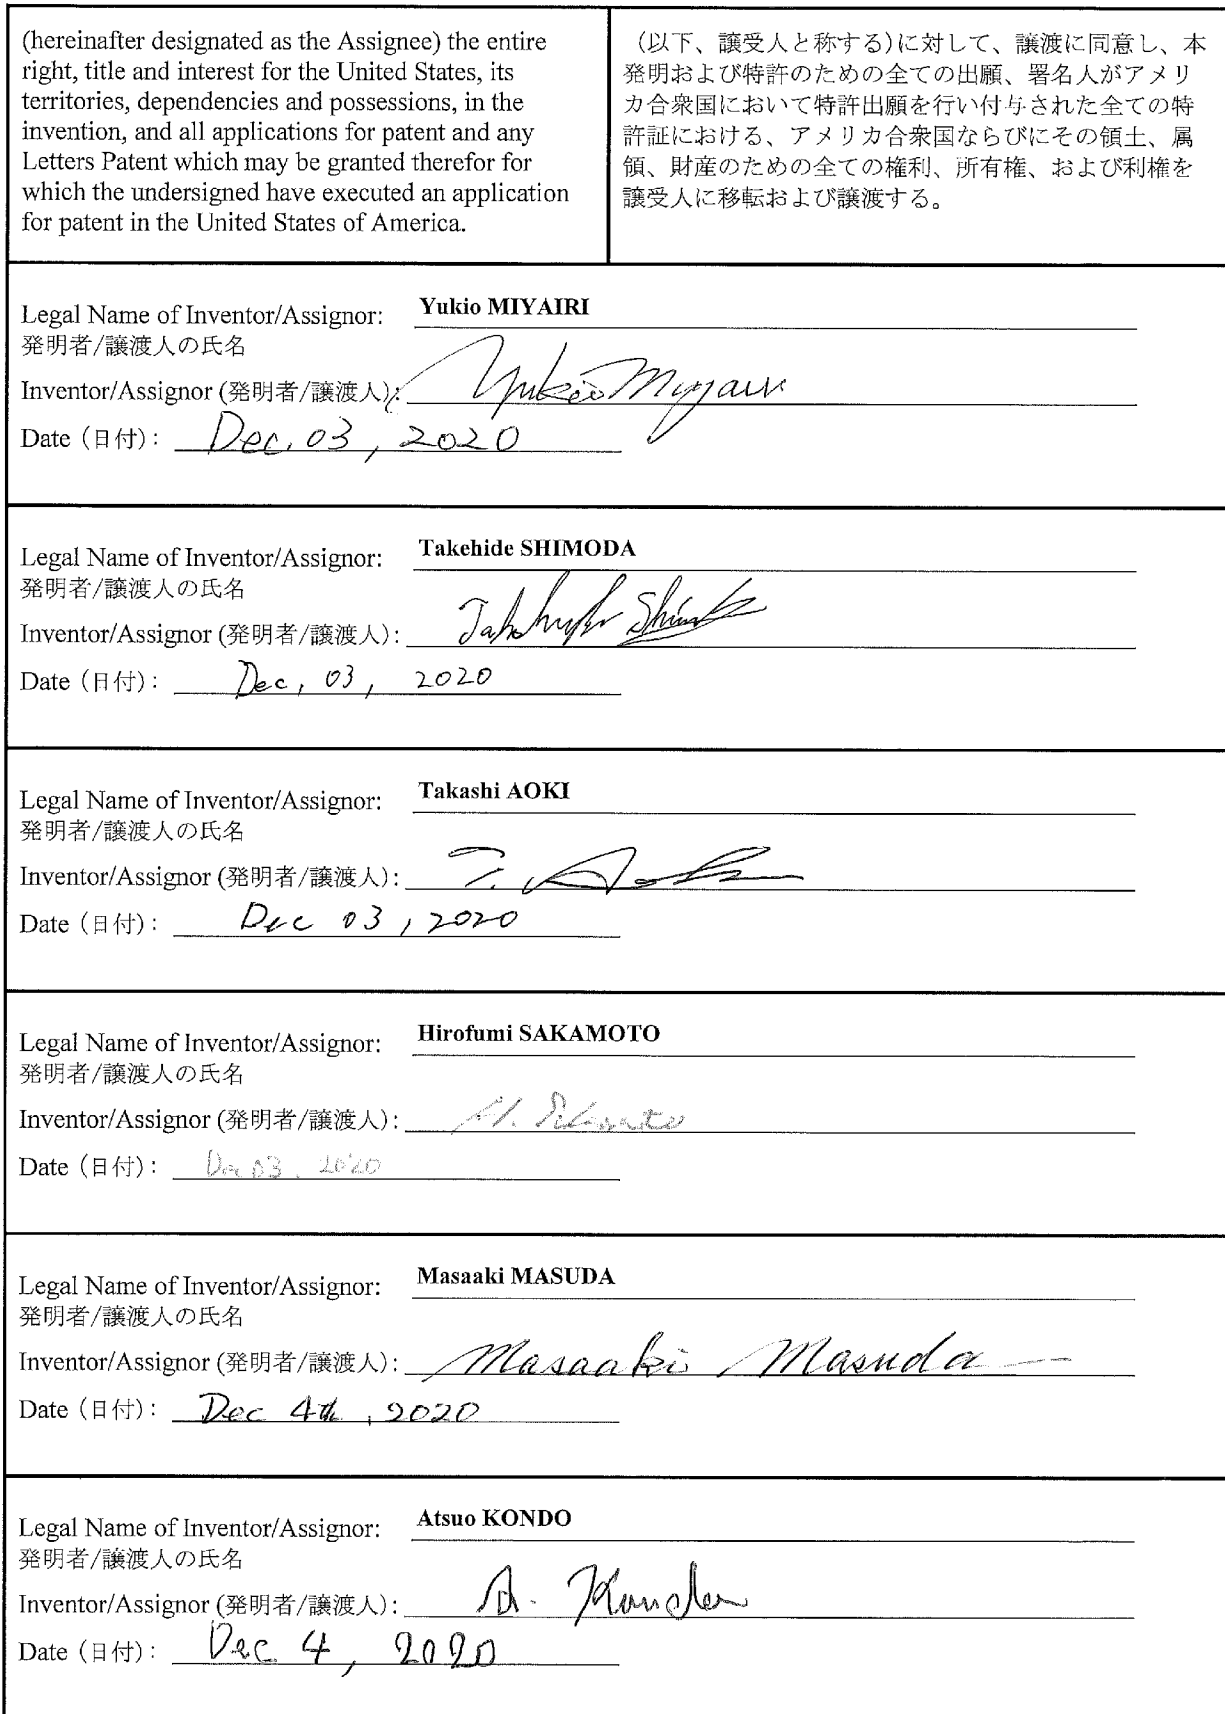 (hereinafter designated as the Assignee) the entire
right, title and interest for the United States, its
territories, dependencies and possessions, in the
invention, and all applications for patent and any
Letters Patent which may be granted therefor for
which the undersigned have executed an application
for patent in the United States of America.
（以下、譲受人と称する)に対して、譲渡に同意し、本
発明および特許のための全ての出願、署名人がアメリ
カ合衆国において特許出願を行い付与された全ての特
許証における、アメリカ合衆国ならびにその領土、属
領、財産のための全ての権利、所有権、および利権を
譲受人に移転および譲渡する。
Legal Name of Inventor/Assignor: Yukio MIYAIRI
発明者/譲渡人の氏名
Inventor/Assignor (発明者/譲渡人): Yukio Miyairi
Date (日付): Dec, 03, 2020
Legal Name of Inventor/Assignor: Takehide SHIMODA
発明者/譲渡人の氏名
Inventor/Assignor (発明者/譲渡人): Takehide Shimoda
Date (日付): Dec, 03, 2020
Legal Name of Inventor/Assignor: Takashi AOKI
発明者/譲渡人の氏名
Inventor/Assignor (発明者/譲渡人): T. Aoki
Date (日付): Dec 03, 2020
Legal Name of Inventor/Assignor: Hirofumi SAKAMOTO
発明者/譲渡人の氏名
Inventor/Assignor (発明者/譲渡人): H. Sakamoto
Date (日付): Dec 03. 2020
Legal Name of Inventor/Assignor: Masaaki MASUDA
発明者/譲渡人の氏名
Inventor/Assignor (発明者/譲渡人): Masaaki Masuda
Date (日付): Dec 4th, 2020
Legal Name of Inventor/Assignor: Atsuo KONDO
発明者/譲渡人の氏名
Inventor/Assignor (発明者/譲渡人): A. Kondo
Date (日付): Dec 4, 2020